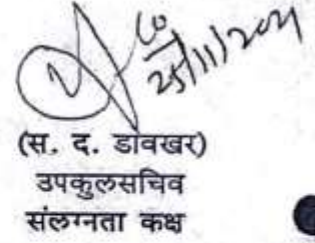 25/11/2021
(स. द. डावखर)
उपकुलसचिव
संलग्नता कक्ष